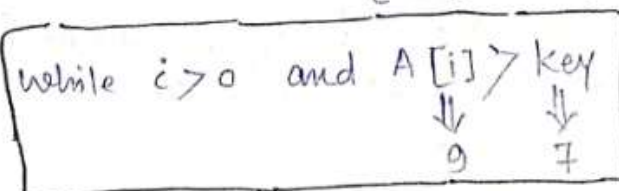 while i > 0 and A[i] > key
⇓ ⇓
9 7